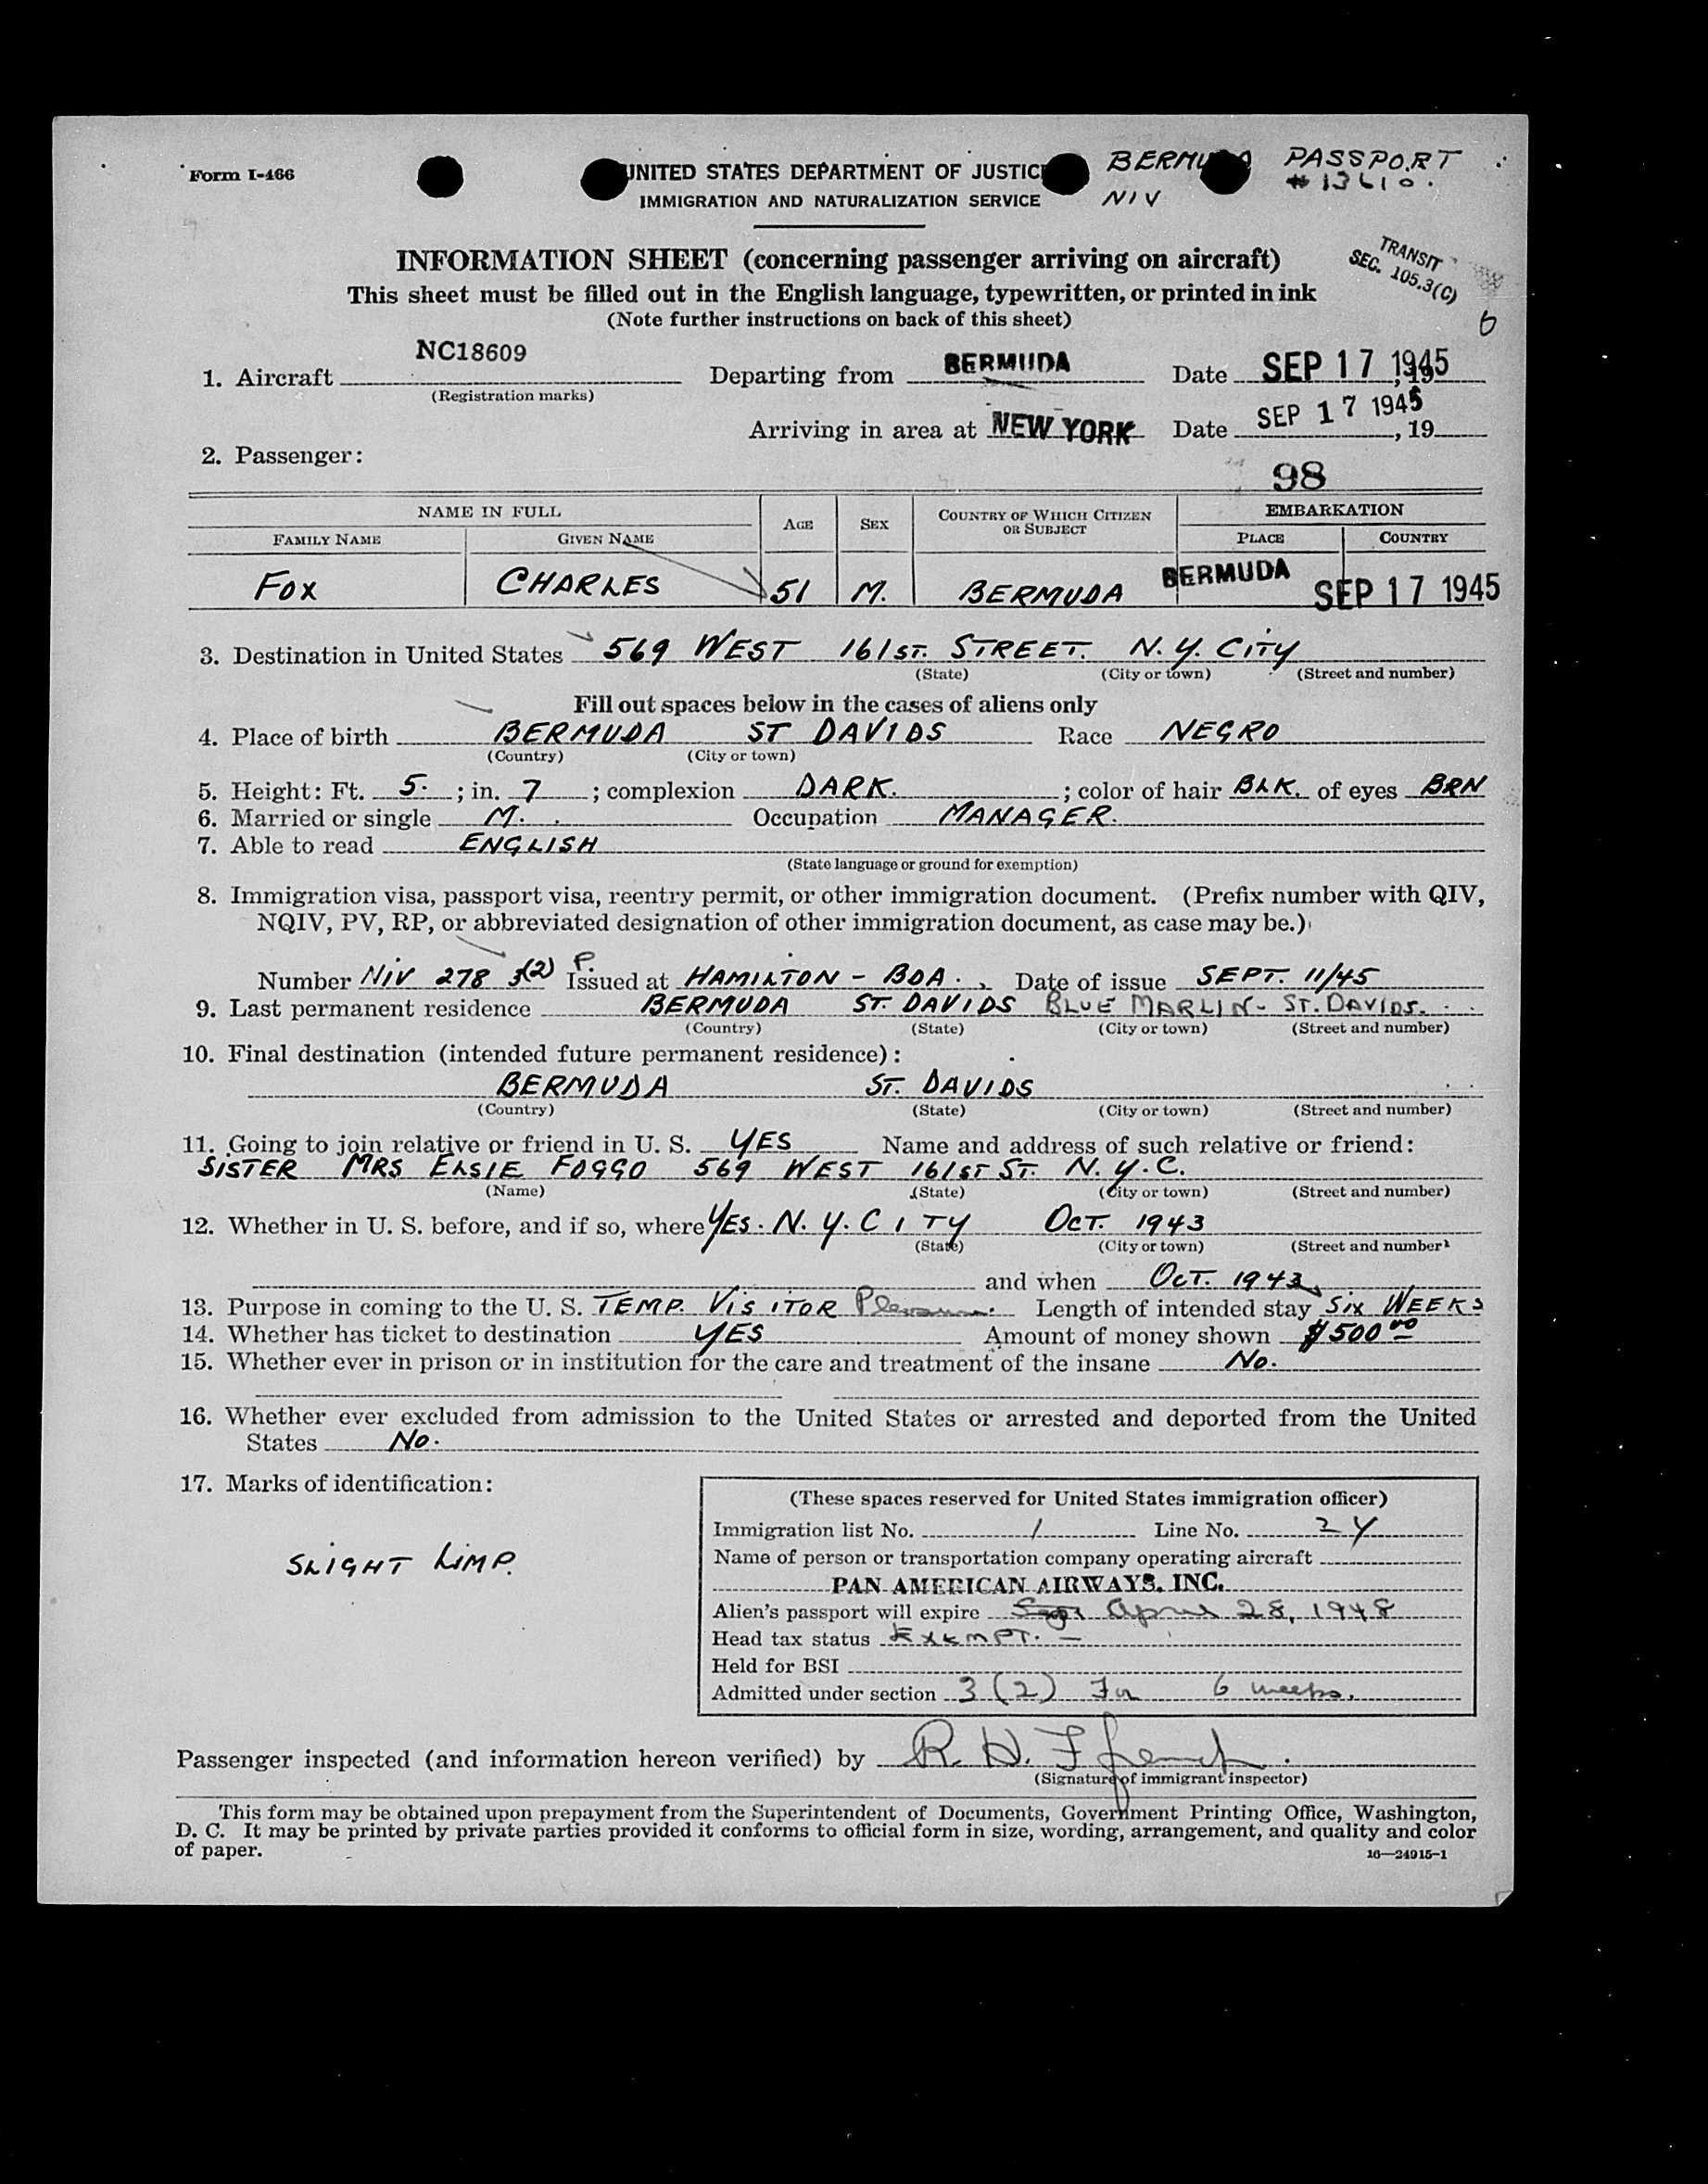 Form I-466
UNITED STATES DEPARTMENT OF JUSTICE
BERMUDA PASSPORT
# 13610.
IMMIGRATION AND NATURALIZATION SERVICE
NIV
INFORMATION SHEET (concerning passenger arriving on aircraft)
TRANSIT
SEC. 105.3(C)
This sheet must be filled out in the English language, typewritten, or printed in ink
(Note further instructions on back of this sheet)
6
1. Aircraft NC18609 Departing from BERMUDA Date SEP 17 1945, 19
(Registration marks)
Arriving in area at NEW YORK Date SEP 17 1945, 19
2. Passenger:
98
NAME IN FULL AGE SEX COUNTRY OF WHICH CITIZEN OR SUBJECT EMBARKATION
FAMILY NAME GIVEN NAME PLACE COUNTRY
FOX CHARLES 51 M. BERMUDA BERMUDA SEP 17 1945
3. Destination in United States 569 WEST 161ST. STREET. N.Y. CITY
(State) (City or town) (Street and number)
Fill out spaces below in the cases of aliens only
4. Place of birth BERMUDA ST DAVIDS Race NEGRO
(Country) (City or town)
5. Height: Ft. 5. ; in. 7 ; complexion DARK. ; color of hair BLK. of eyes BRN
6. Married or single M. Occupation MANAGER.
7. Able to read ENGLISH
(State language or ground for exemption)
8. Immigration visa, passport visa, reentry permit, or other immigration document. (Prefix number with QIV,
NQIV, PV, RP, or abbreviated designation of other immigration document, as case may be.)
Number NIV 278 3(2) P. Issued at HAMILTON - BDA. Date of issue SEPT. 11/45
9. Last permanent residence BERMUDA ST. DAVIDS BLUE MARLIN - ST. DAVIDS.
(Country) (State) (City or town) (Street and number)
10. Final destination (intended future permanent residence):
BERMUDA ST. DAVIDS
(Country) (State) (City or town) (Street and number)
11. Going to join relative or friend in U. S. YES Name and address of such relative or friend:
SISTER MRS ELSIE FOGGO 569 WEST 161ST ST. N.Y.C.
(Name) (State) (City or town) (Street and number)
12. Whether in U. S. before, and if so, where YES. N.Y. CITY OCT. 1943
(State) (City or town) (Street and number)
and when OCT. 1943
13. Purpose in coming to the U. S. TEMP. VISITOR Length of intended stay SIX WEEKS
14. Whether has ticket to destination YES Amount of money shown $500 00
15. Whether ever in prison or in institution for the care and treatment of the insane NO.
16. Whether ever excluded from admission to the United States or arrested and deported from the United
States NO.
17. Marks of identification:
SLIGHT LIMP.
(These spaces reserved for United States immigration officer)
Immigration list No. 1 Line No. 24
Name of person or transportation company operating aircraft
PAN AMERICAN AIRWAYS, INC.
Alien's passport will expire April 28, 1948
Head tax status EXEMPT. -
Held for BSI
Admitted under section 3(2) For 6 weeks.
Passenger inspected (and information hereon verified) by R. H.
(Signature of immigrant inspector)
This form may be obtained upon prepayment from the Superintendent of Documents, Government Printing Office, Washington,
D. C. It may be printed by private parties provided it conforms to official form in size, wording, arrangement, and quality and color
of paper.
16—24915-1